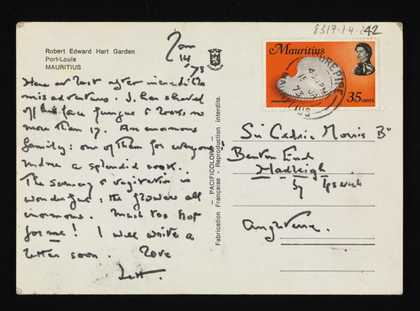 8317.1.4.242
Robert Edward Hart Garden
Port-Louis
MAURITIUS
Jan
14
/73
Here at last after incredible
misadventures. J. has shaved
off his face fungus & looks no
more than 17. An enormous
family: one of them for everyone
and me a splendid cook.
The scenery & vegetation is
wonderful; the flowers all
enormous. Much too hot
for me! I will write a
letter soon. Love
Lett.
PACIFICOLOR
Fabrication Française Reproduction Interdite
Mauritius
35 cents
CUREPIPE
MAURITIUS
Sir Cedric Morris Bt
Benton End
Hadleigh
by Ipswich
Angleterre.